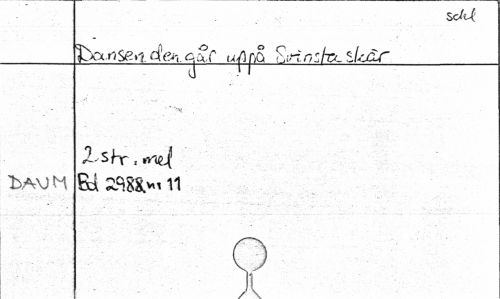 schl
Dansen den går uppå Svinsta skär
2 str. mel
DAUM Bd 2988 nr 11